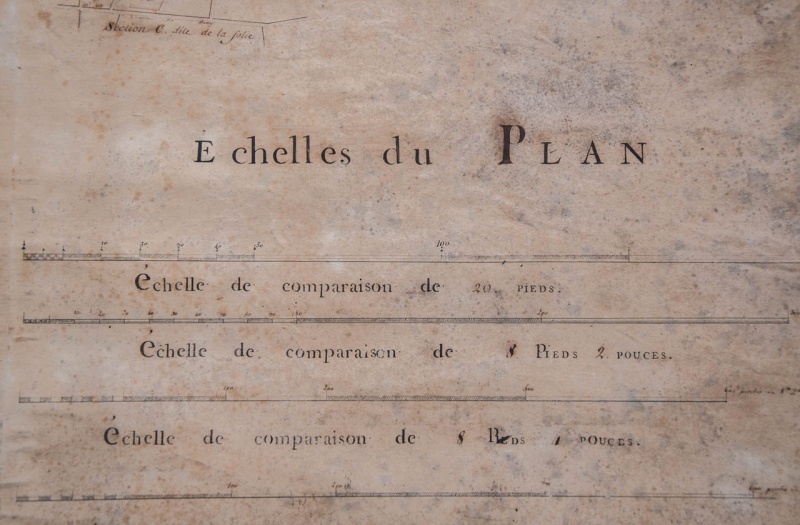 Section C. dite de la folie
Echelles du PLAN
100
échelle de comparaison de 20. PIEDS.
échelle de comparaison de 8 PIEDS 2 POUCES.
échelle de comparaison de 8 PIEDS 1 POUCES.